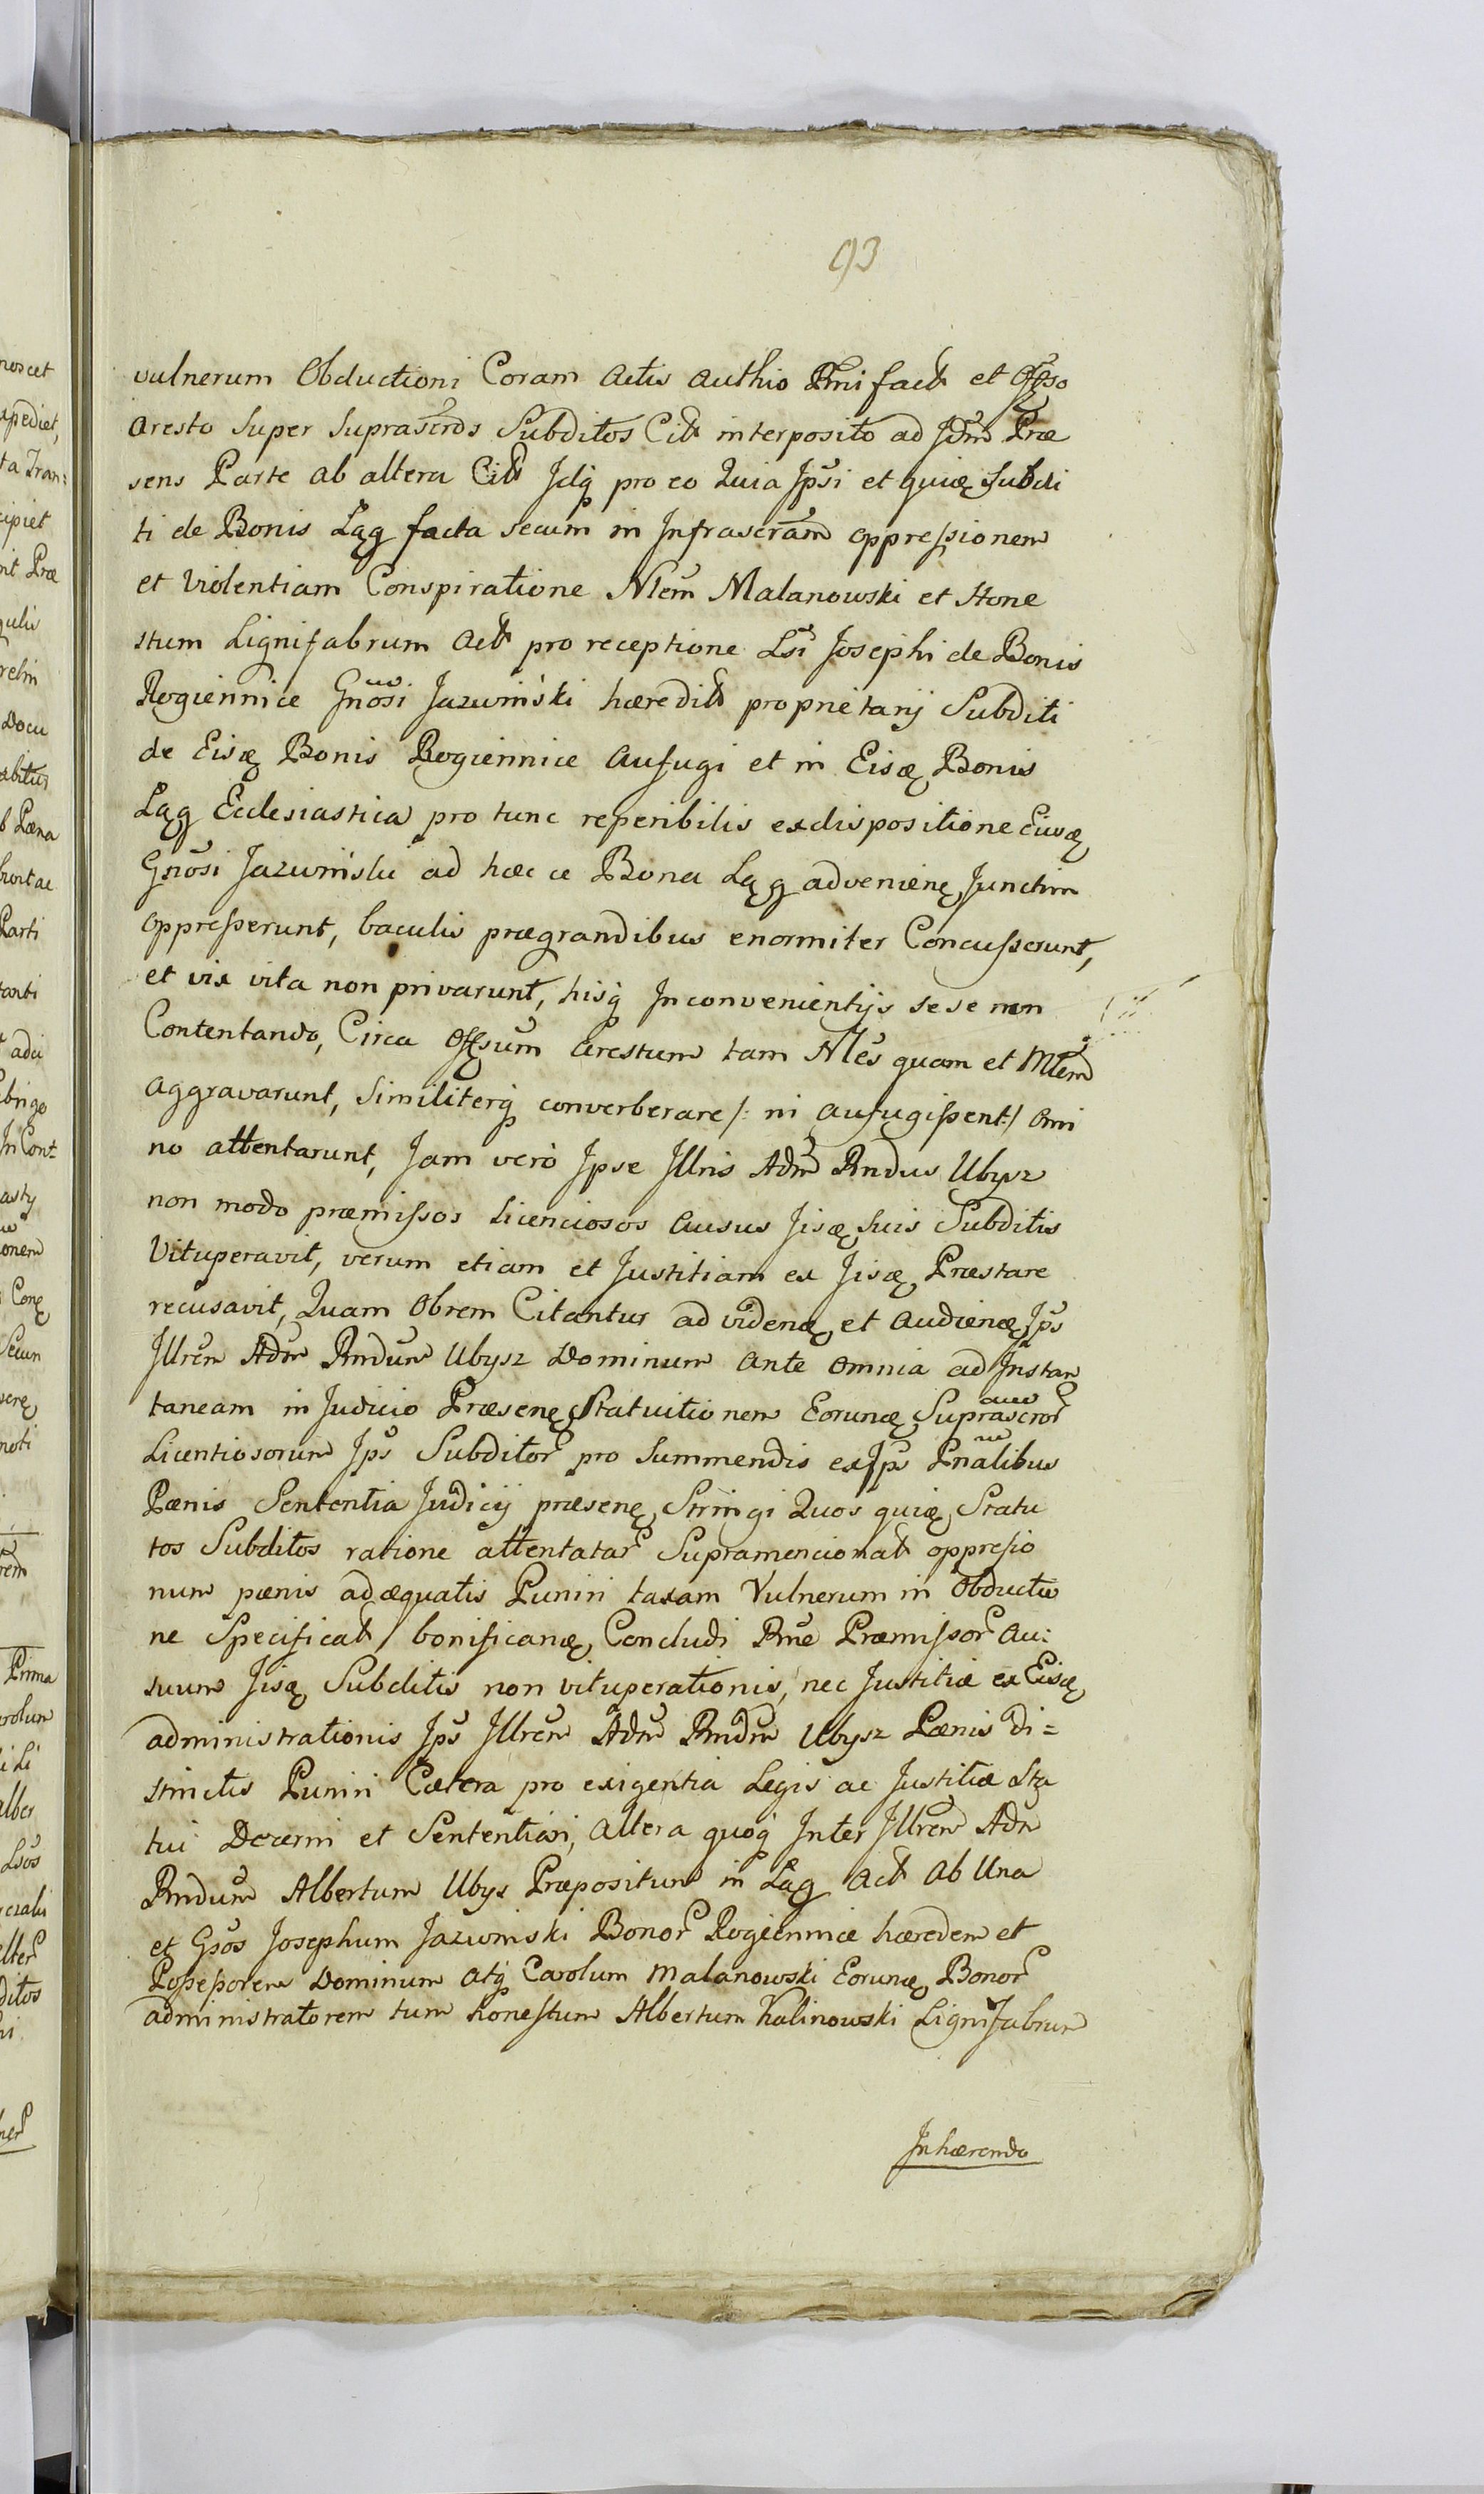 93
vulnerum Obductioni Coram Actis Authio Pñi fact et Offso
Aresto Super Suprascrõs Subditos Citt interposito ad Jdm̃ Præ
sens Parte ab altera Citt Jdq̃ pro eo Quia Jpsi et quię Subdi
ti de Bonis Łąg facta secum in Jnfrascram̃ oppressionem
et Violentiam Conspiratione Nlem̃ Malanowski et Hone
stum Lignifabrum Act pro receptione Lsi Josephi de Bonis
Rogiennice Gnosi Jazwinski hæredit proprietarij Subditi
de Eisę Bonis Rogiennice Aufugi et in Eisę Bonis
Łąg Ecclesiastica pro tunc reperibilis exdispositione Eiusę
Gnõsi Jazwinski ad hæc ce Bona Łąg advenienę Junctim
oppresserunt, baculis prægrandibus enormiter Concusserunt,
et vix vita non privarunt, hisq̃ Jnconvenientijs sese non
Contentando, Circa Offsum̃ Arestum tam Nles̃ quam et Mlem̃
Aggravarunt, Similiterq̃ converberare /: ni aufugissent :/ Omi
no attentarunt, Jam verò Jpse Jllris Adm̃ Rndus Ubysz
non modo præmissos Licenciosos Ausus Jisę Suis Subditis
Vituperavit, verum etiam et Justitiam ex Jisę Præstare
recusavit, Quam Obrem Citantur ad videnę et Audienę Jps̃
Jllrem̃ Adm̃ Rndum̃ Ubysz Dominum Ante Omnia ad Jnstan
taneam in Judicio Præsenę Statuitionem Eorunę Suprascror
Licentiosorum Jps̃ Subditor pro Summendis ex Jps̃ Pnalibus
Pænis Sententia Judicij præsenę Stringi Quos quię Statu
tos Subditos ratione attentatar Supramencionat oppresio
num pænis adæquatis Puniri taxam Vulnerum in Obductio
ne Specificat bonificanę Concludi Rne Præmissor Au:
suum Jisę Subditis non vituperationis, nec Justitiæ ex Eisę
administrationis Jps̃ Jllrem̃ Adm̃ Rndm̃ Ubysz Pænis di=
stinctis Puniri Cætera pro exigentia Legis ac Justitiæ Sta
tui Decerni et Sententiari, Altera quoq̃ Jnter Jllrem̃ Adm̃
Rndum̃ Albertum Ubysz Præpositum in Łąg Act Ab Una
et Gsos̃ Josephum Jazwinski Bonor Rogiennice hæredem et
Possessorem Dominum Atq̃ Carolum Malanowski Eorunę Bonor
administratorem tum honestum Albertum Kalinowski Lignifabrum
Jnhærendo